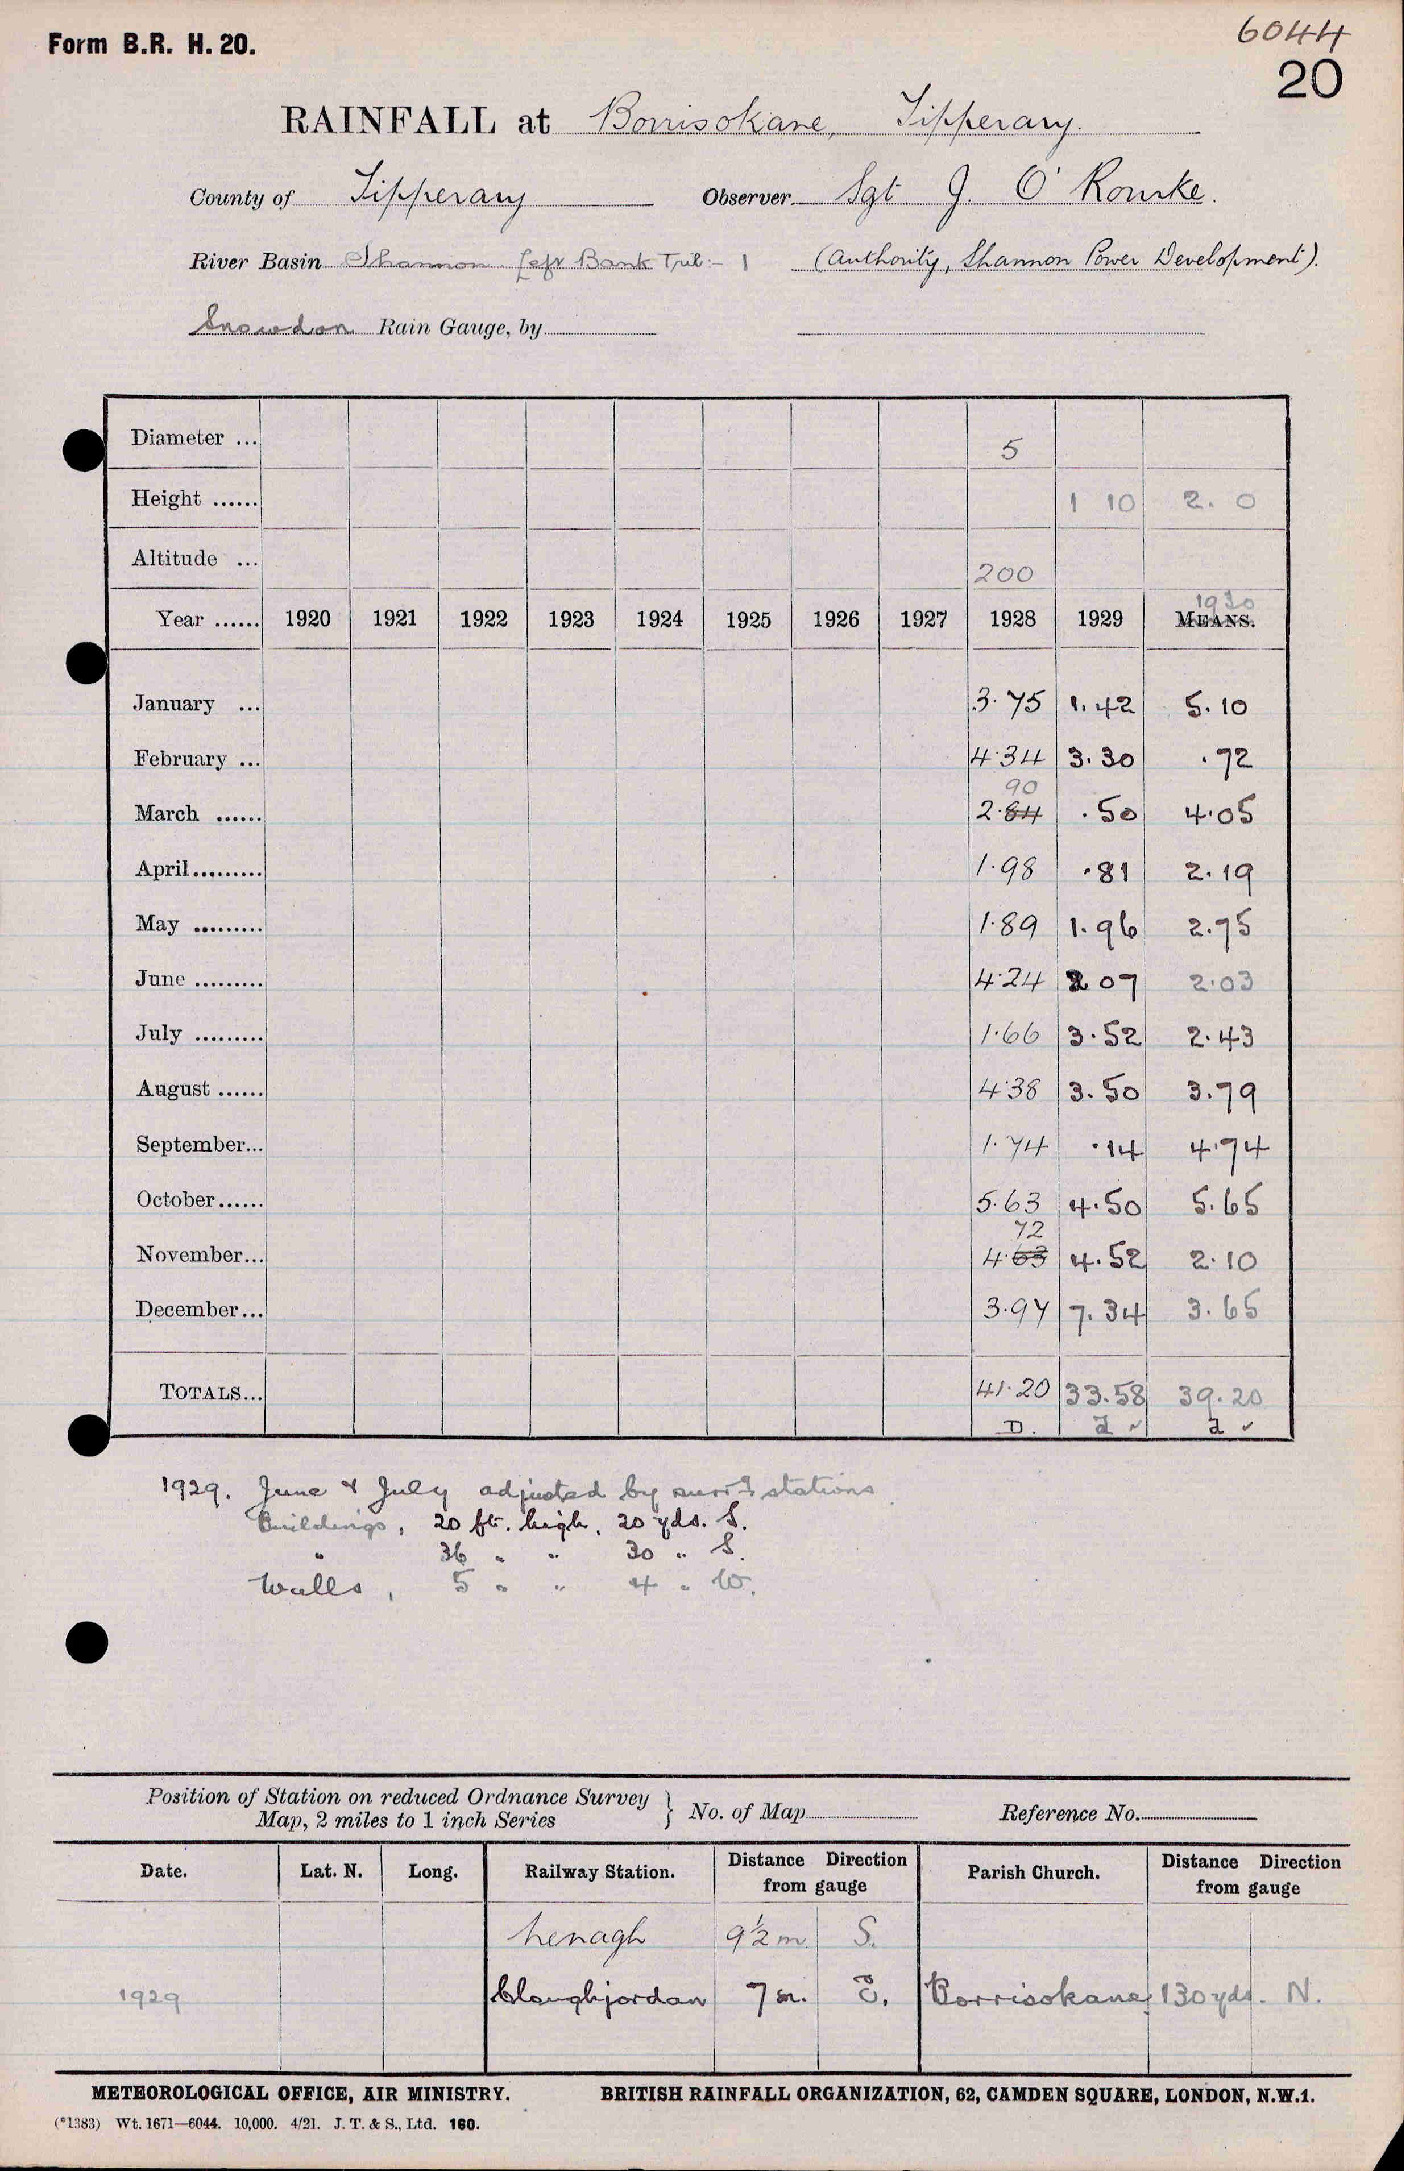 Form B.R. H. 20.
6044
20
RAINFALL at Borrisokane, Tipperary.
County of Tipperary Observer Sgt J. O'Rourke.
River Basin Shannon Left Bank Trib:- 1 (Authority, Shannon Power Development).
Snowdon Rain Gauge, by
Diameter ... 5
Height ...... 1 10 2. 0
Altitude ... 200
1930
Year ...... 1920 1921 1922 1923 1924 1925 1926 1927 1928 1929 MEANS.
January ... 3.75 1.42 5.10
February ... 4.34 3.30 .72
90
March ...... 2.84 .50 4.05
April......... 1.98 .81 2.19
May ......... 1.89 1.96 2.75
June ......... 4.24 2 07 2.03
July ......... 1.66 3.52 2.43
August ...... 4.38 3.50 3.79
September... 1.74 .14 4.74
October...... 5.63 4.50 5.65
72
November... 4.63 4.52 2.10
December... 3.97 7.34 3.65
TOTALS... 41.20 33.58 39.20
D.
1929. June & July adjusted by surrg stations
Buildings, 20 ft. high, 20 yds. S.
" 36 " " 30 " S.
Walls, 5 " " 4 " W.
Position of Station on reduced Ordnance Survey
Map, 2 miles to 1 inch Series } No. of Map Reference No.
Date. Lat. N. Long. Railway Station. Distance Direction from gauge Parish Church. Distance Direction from gauge
Nenagh 9½ m. S.
1929 Cloughjordan 7 m. E. Borrisokane, 130 yds. N.
METEOROLOGICAL OFFICE, AIR MINISTRY. BRITISH RAINFALL ORGANIZATION, 62, CAMDEN SQUARE, LONDON, N.W.1.
(*1383) Wt. 1671—6044. 10,000. 4/21. J. T. & S., Ltd. 160.